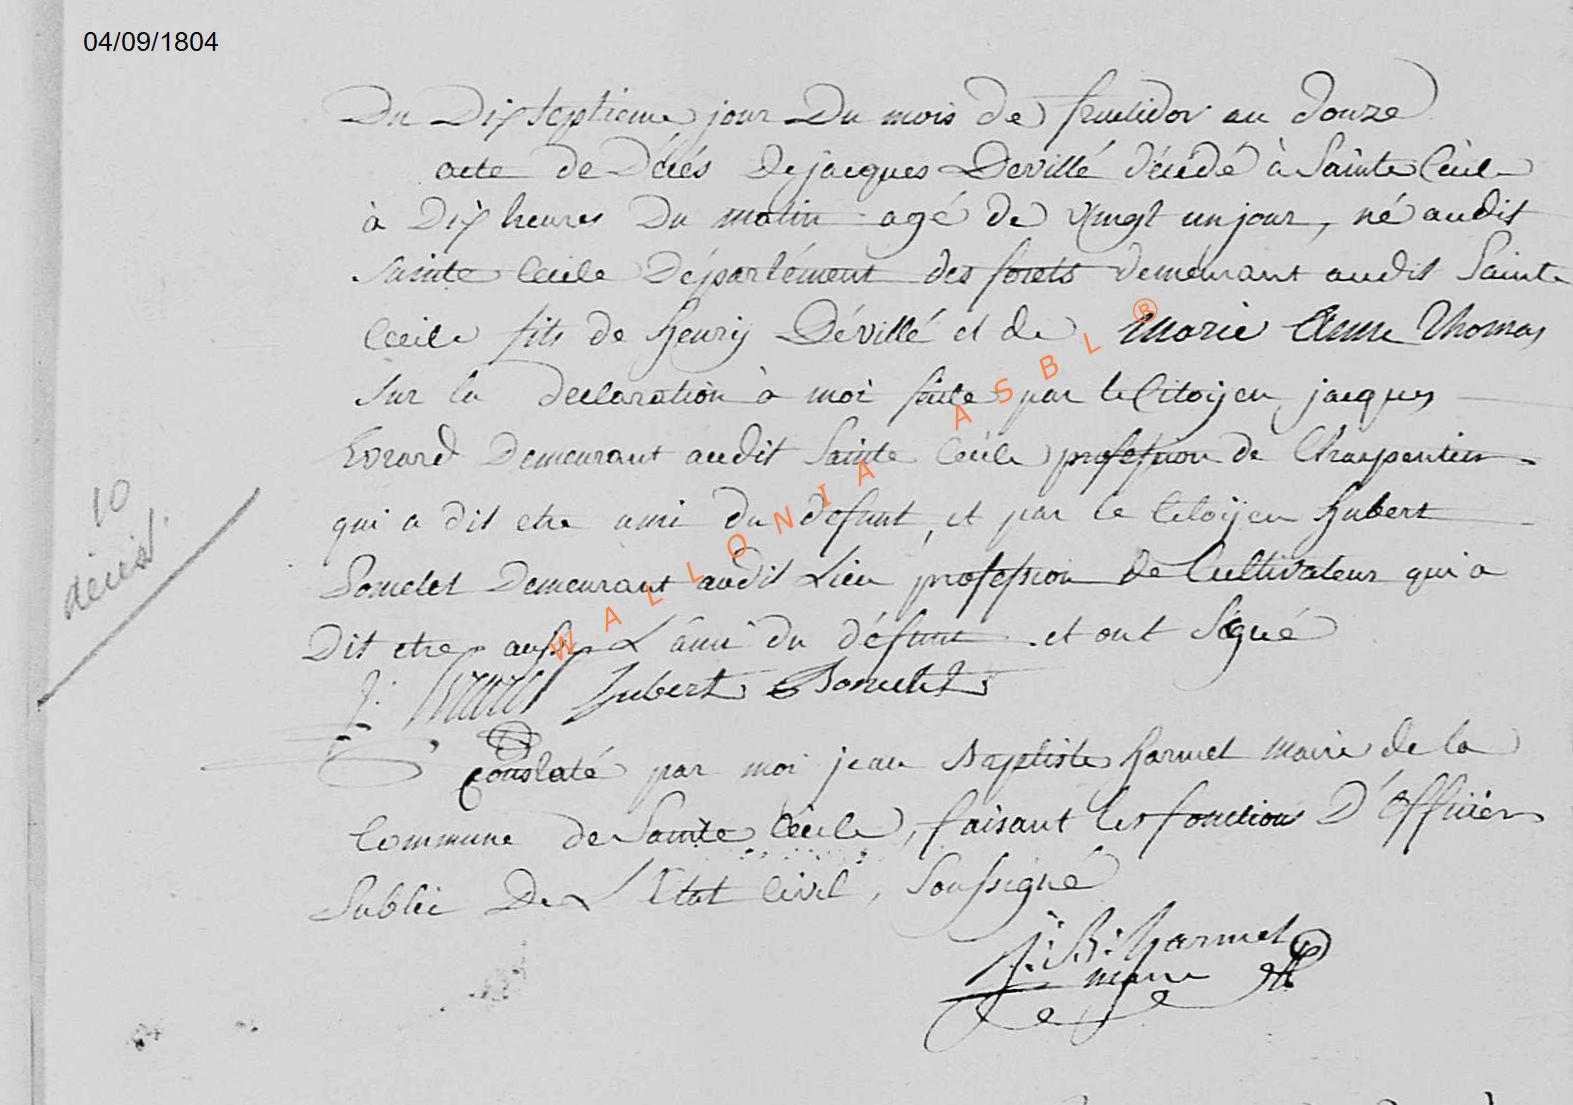 04/09/1804
Du Dix septieme jour Du mois de fructidor an douze
acte de Décés de jacques Devillé décédé à Sainte Cécile
à Dix heures Du matin agé de vingt un jour, né audit
Sainte Cecile Département des forets demeurant audit Sainte
Cecile fils de henry Dévillé et de Marie Anne Thomas
Sur la declaration à moi faite par le Citoyen jacques
Evrard Demeurant audit Sainte Cécile profession de Charpentier
qui a dit etre ami du defunt, et par le Citoyen hubert
Poncelet Demeurant audit Lieu profession de Cultivateur qui a
Dit etre aussi L'ami du défunt et ont Signé
10
décès
J: Evrard hubert Poncelet
Constaté par moi jean Baptiste harmel maire de la
Commune de Sainte Cécile, faisant les fonctions D'officier
Public De L'Etat Civil, Soussigné
J: B: harmel
maire
WALLONIA ASBL ®